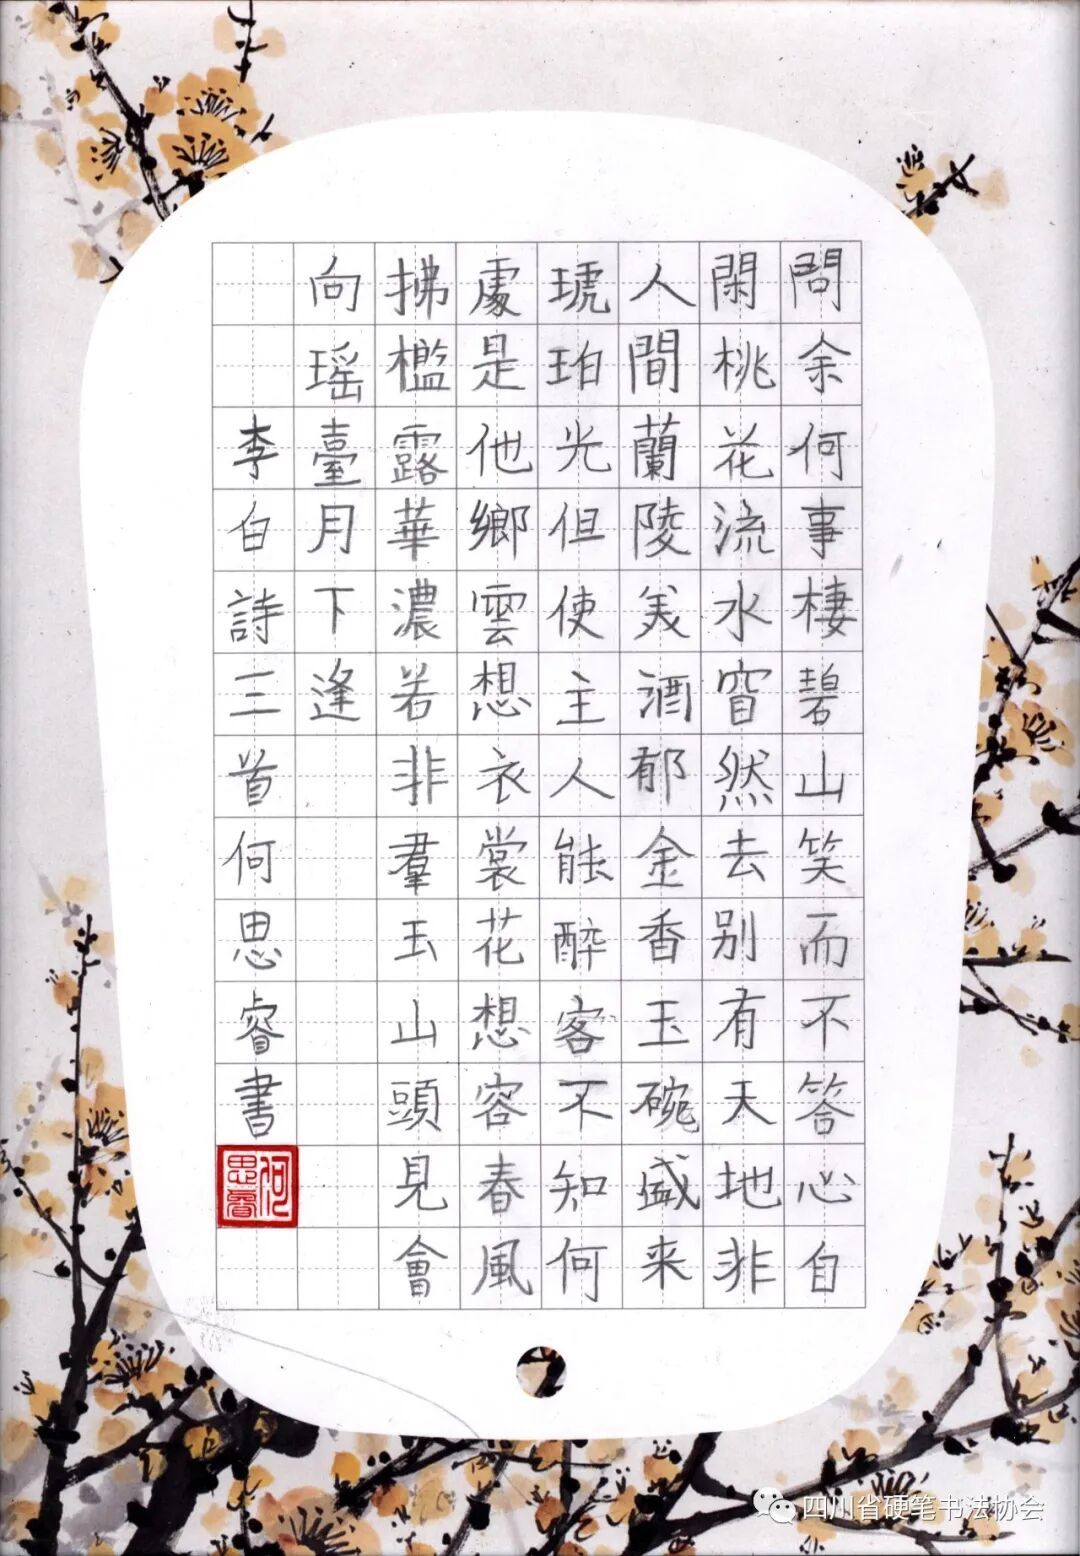 問余何事棲碧山笑而不答心自
閑桃花流水窅然去别有天地非
人間蘭陵美酒郁金香玉碗盛来
琥珀光但使主人能醉客不知何
處是他鄉雲想衣裳花想容春風
拂檻露華濃若非羣玉山頭見會
向瑶臺月下逢
李白詩三首何思睿書
何思睿
四川省硬笔书法协会